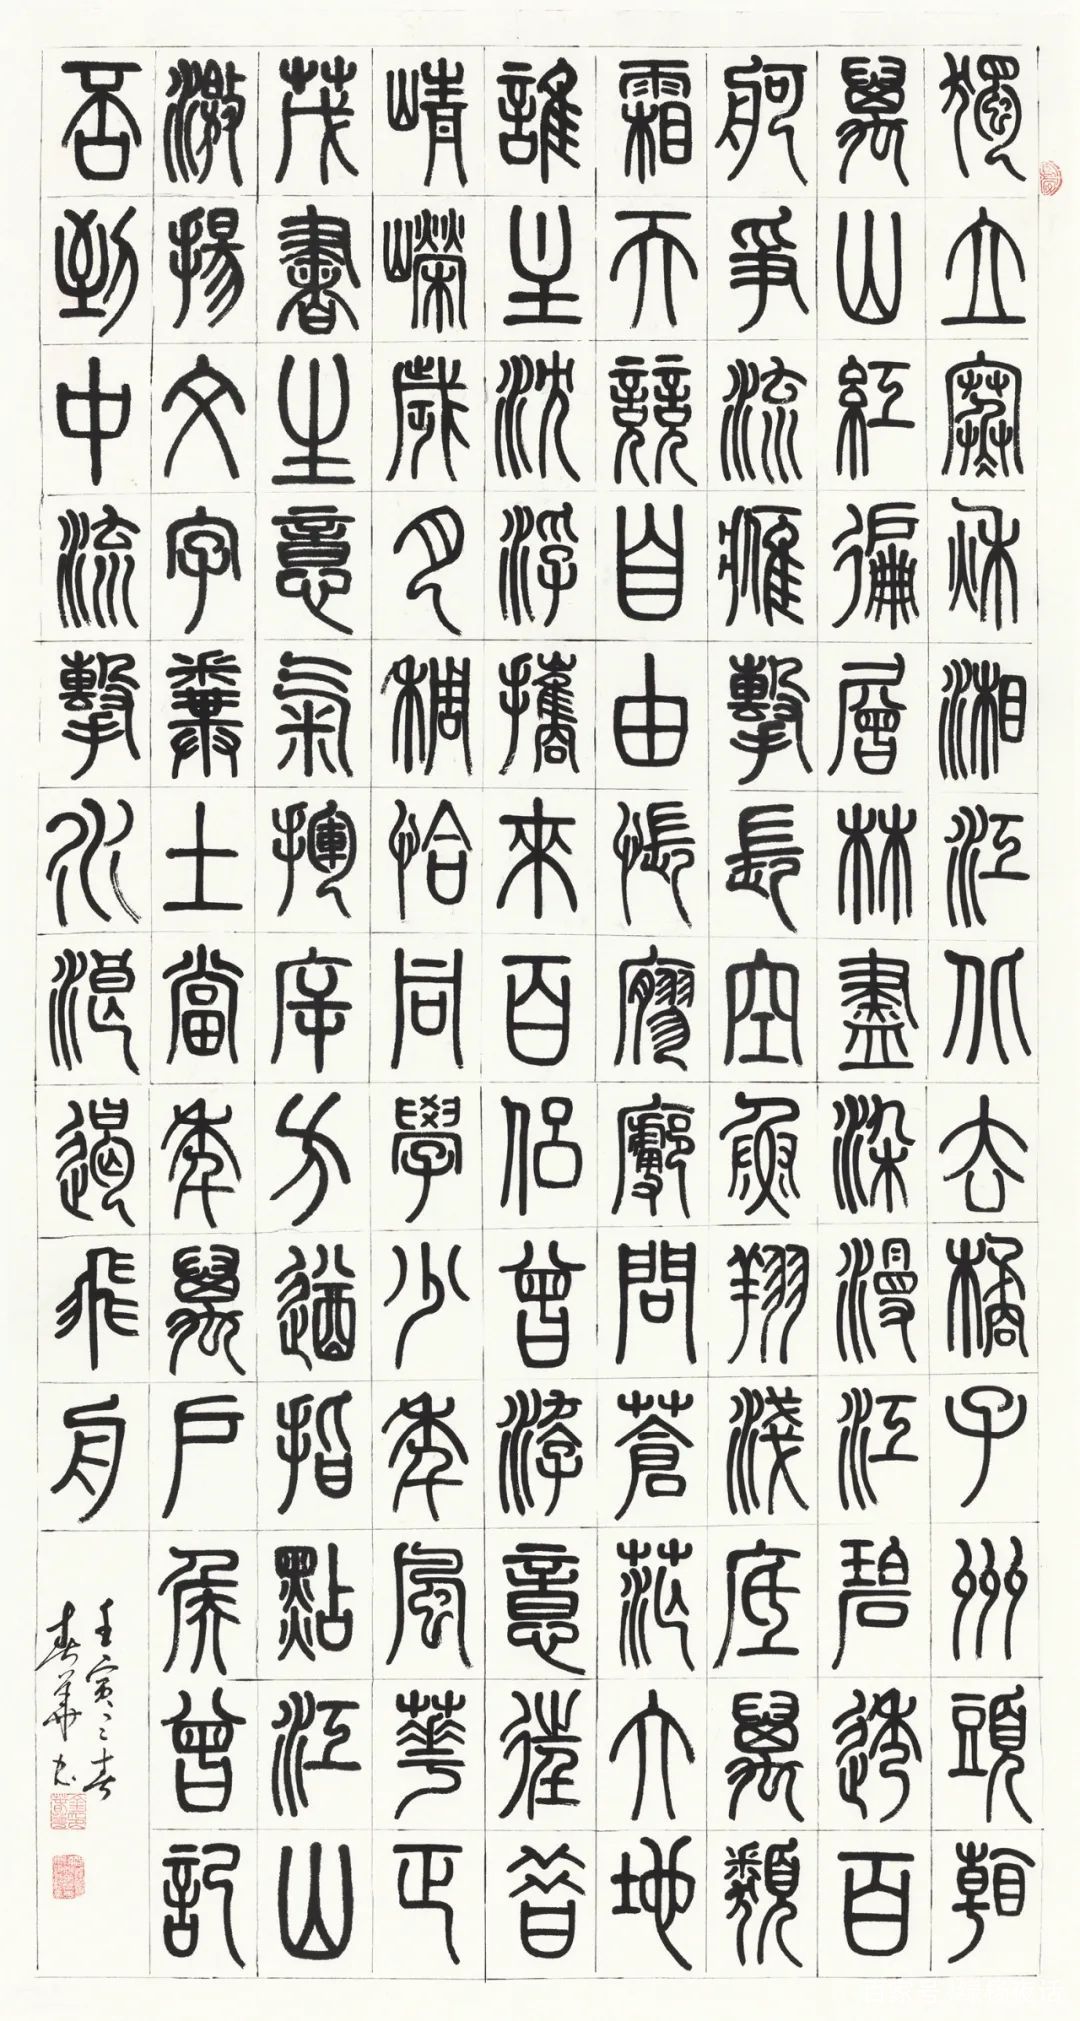 獨立寒秋湘江北去橘子州頭看
萬山紅遍層林盡染漫江碧透百
舸爭流鷹擊長空魚翔淺底萬類
霜天競自由悵寥廓問蒼茫大地
誰主沈浮攜來百侶曾游意往昔
崝嶸歲月稠恰同學少年風華正
茂書生意氣揮斥方遒指點江山
激揚文字糞土當年萬戶侯曾記
否到中流擊水浪遏飛舟
壬寅之春
春華